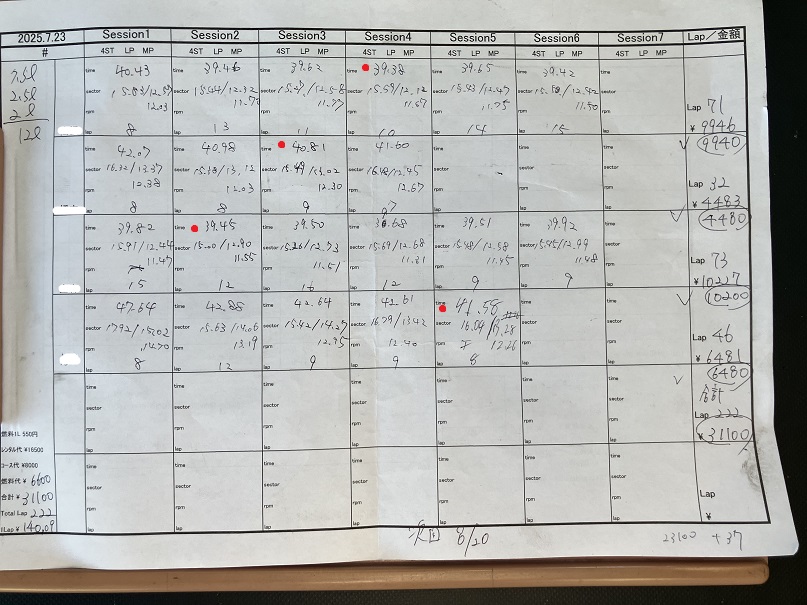 2025.7.23 Session1 Session2 Session3 Session4 Session5 Session6 Session7 Lap／金額
# 4ST LP MP 4ST LP MP 4ST LP MP 4ST LP MP 4ST LP MP 4ST LP MP 4ST LP MP
time 40.43 time 39.46 time 39.62 time 39.38 time 39.65 time 39.42 time
2.5l
2l
12l
sector sector sector sector 15.59/12.12 sector 15.43/12.47 sector sector
rpm 12.03 rpm rpm 11.77 rpm 11.57 rpm 11.75 rpm 11.50 rpm
lap 8 lap 13 lap 11 lap 10 lap 14 lap 15 lap
Lap 71
¥ 9946
9940
time 42.07 time 40.98 time 40.81 time 41.60 time time time
sector 16.32/13.37 sector 15.18/13.12 sector 15.49/13.02 sector 16.48/12.45 sector sector sector
rpm rpm 12.03 rpm 12.30 rpm 12.67 rpm rpm rpm
lap 8 lap 8 lap 9 lap 7 lap lap lap
Lap 32
¥4483
4480
time 39.82 time 39.45 time 39.50 time time 39.51 time 39.92 time
sector 15.91/12.44 sector 15.00/12.90 sector 15.26/12.73 sector 15.69/12.68 sector 15.48/12.58 sector sector
rpm 11.47 rpm 11.55 rpm 11.51 rpm 11.31 rpm 11.45 rpm 11.48 rpm
lap 15 lap 12 lap 16 lap 12 lap 9 lap 9 lap
Lap 73
¥10227
10200
time 47.64 time 42.88 time 42.64 time 41.61 time 41.58 time time
sector 17.92/15.02 sector 15.63/14.06 sector 15.42/14.27 sector 16.79/13.42 sector sector sector
rpm 14.70 rpm 13.19 rpm 12.95 rpm 12.40 rpm 12.26 rpm rpm
lap 8 lap 12 lap 9 lap 9 lap 8 lap lap
Lap 46
¥6481
6480
time time time time time time time
sector sector sector sector sector sector sector
rpm rpm rpm rpm rpm rpm rpm
lap lap lap lap lap lap lap
合計
Lap 222
¥31100
time time time time time time time
sector sector sector sector sector sector sector
rpm rpm rpm rpm rpm rpm rpm
lap lap lap lap lap lap lap
Lap
¥
燃料1L 550円
レンタル代 ¥16500
コース代 ¥8000
燃料代 ¥ 6600
合計 ¥ 31100
Total Lap 222
1Lap ¥ 140.09
次回 8/20
23100 +37